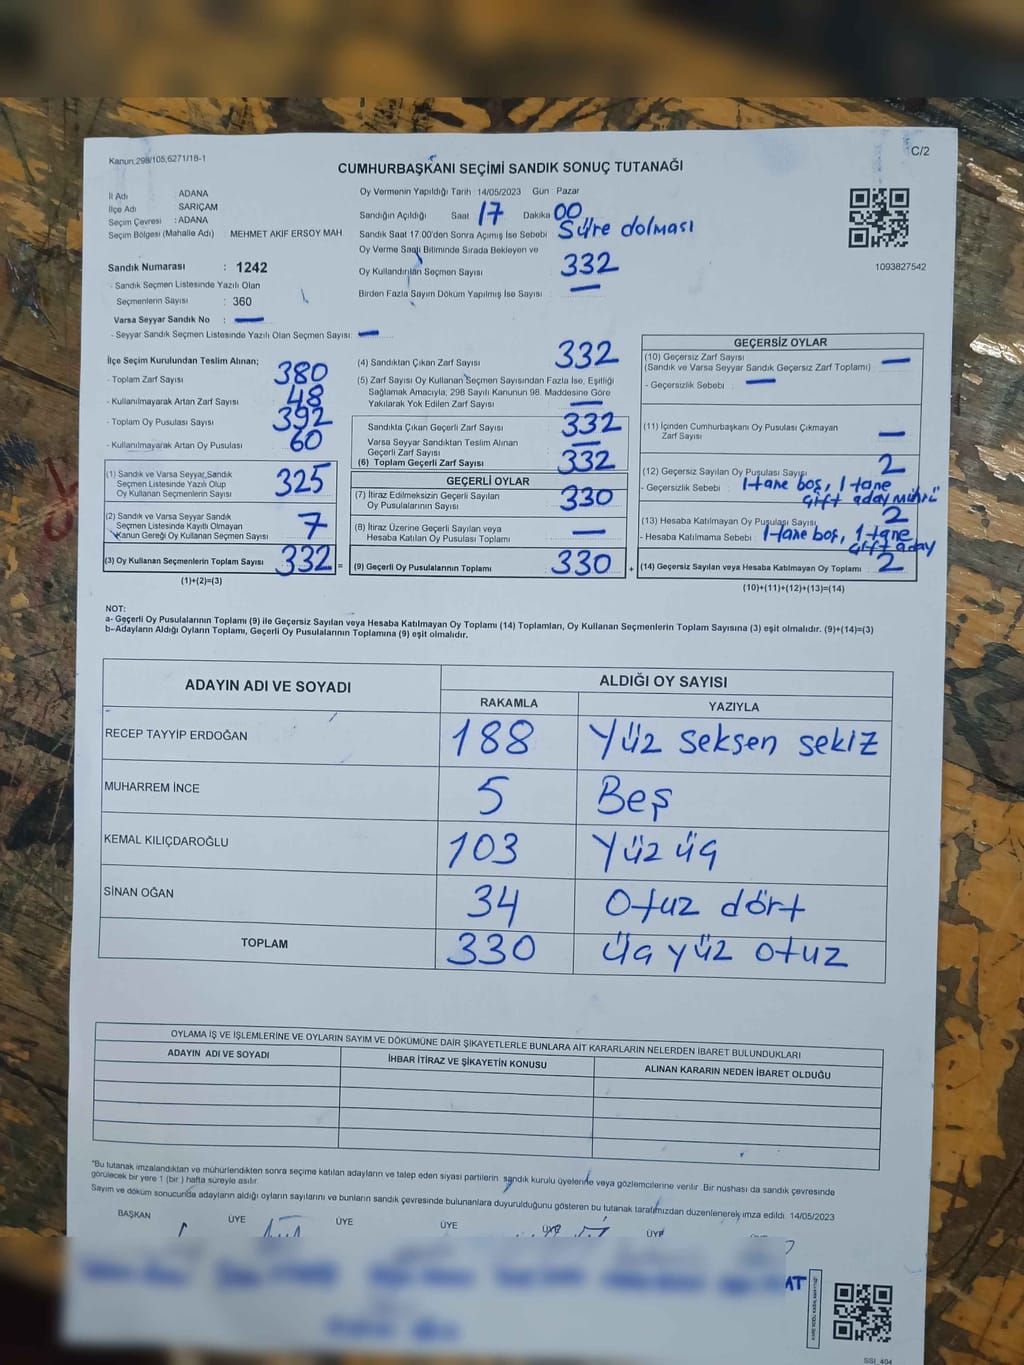 Kanun,298/105,6271/18-1
C/2
CUMHURBAŞKANI SEÇİMİ SANDIK SONUÇ TUTANAĞI
İl Adı : ADANA
İlçe Adı : SARIÇAM
Seçim Çevresi : ADANA
Seçim Bölgesi (Mahalle Adı) : MEHMET AKIF ERSOY MAH
Sandık Numarası : 1242
- Sandık Seçmen Listesinde Yazılı Olan
Seçmenlerin Sayısı : 360
Varsa Seyyar Sandık No : —
- Seyyar Sandık Seçmen Listesinde Yazılı Olan Seçmen Sayısı: —
Oy Vermenin Yapıldığı Tarih : 14/05/2023 Gün Pazar
Sandığın Açıldığı Saat 17 Dakika 00
Sandık Saat 17.00'den Sonra Açımış İse Sebebi : Süre dolması
Oy Verme Saati Bitiminde Sırada Bekleyen ve
Oy Kullandırılan Seçmen Sayısı 332
Birden Fazla Sayım Döküm Yapılmış İse Sayısı : —
1093827542
İlçe Seçim Kurulundan Teslim Alınan;
- Toplam Zarf Sayısı 380
- Kullanılmayarak Artan Zarf Sayısı 48
- Toplam Oy Pusulası Sayısı 392
- Kullanılmayarak Artan Oy Pusulası 60
(1) Sandık ve Varsa Seyyar Sandık
Seçmen Listesinde Yazılı Olup
Oy Kullanan Seçmenlerin Sayısı 325
(2) Sandık ve Varsa Seyyar Sandık
Seçmen Listesinde Kayıtlı Olmayan
Kanun Gereği Oy Kullanan Seçmen Sayısı 7
(3) Oy Kullanan Seçmenlerin Toplam Sayısı 332 =
(1)+(2)=(3)
(4) Sandıktan Çıkan Zarf Sayısı 332
(5) Zarf Sayısı Oy Kullanan Seçmen Sayısından Fazla İse, Eşitliği
Sağlamak Amacıyla, 298 Sayılı Kanunun 98. Maddesine Göre
Yakılarak Yok Edilen Zarf Sayısı —
Sandıkta Çıkan Geçerli Zarf Sayısı 332
Varsa Seyyar Sandıktan Teslim Alınan
Geçerli Zarf Sayısı —
(6) Toplam Geçerli Zarf Sayısı 332
GEÇERLİ OYLAR
(7) İtiraz Edilmeksizin Geçerli Sayılan
Oy Pusulalarının Sayısı 330
(8) İtiraz Üzerine Geçerli Sayılan veya
Hesaba Katılan Oy Pusulası Toplamı —
(9) Geçerli Oy Pusulalarının Toplamı 330 +
GEÇERSİZ OYLAR
(10) Geçersiz Zarf Sayısı
(Sandık ve Varsa Seyyar Sandık Geçersiz Zarf Toplamı) —
- Geçersizlik Sebebi : —
(11) İçinden Cumhurbaşkanı Oy Pusulası Çıkmayan
Zarf Sayısı —
(12) Geçersiz Sayılan Oy Pusulası Sayısı 2
- Geçersizlik Sebebi : 1 tane boş, 1 tane
çift aday mührü
(13) Hesaba Katılmayan Oy Pusulası Sayısı 2
- Hesaba Katılmama Sebebi : 1 tane boş, 1 tane
çift aday
(14) Geçersiz Sayılan veya Hesaba Katılmayan Oy Toplamı 2
(10)+(11)+(12)+(13)=(14)
NOT:
a- Geçerli Oy Pusulalarının Toplamı (9) ile Geçersiz Sayılan veya Hesaba Katılmayan Oy Toplamı (14) Toplamları, Oy Kullanan Seçmenlerin Toplam Sayısına (3) eşit olmalıdır. (9)+(14)=(3)
b- Adayların Aldığı Oyların Toplamı, Geçerli Oy Pusulalarının Toplamına (9) eşit olmalıdır.
ADAYIN ADI VE SOYADI
ALDIĞI OY SAYISI
RAKAMLA YAZIYLA
RECEP TAYYİP ERDOĞAN 188 Yüz seksen sekiz
MUHARREM İNCE 5 Beş
KEMAL KILIÇDAROĞLU 103 Yüz üç
SİNAN OĞAN 34 Otuz dört
TOPLAM 330 Üç yüz otuz
OYLAMA İŞ VE İŞLEMLERİNE VE OYLARIN SAYIM VE DÖKÜMÜNE DAİR ŞİKAYETLERLE BUNLARA AİT KARARLARIN NELERDEN İBARET BULUNDUKLARI
ADAYIN ADI VE SOYADI İHBAR İTİRAZ VE ŞİKAYETİN KONUSU ALINAN KARARIN NEDEN İBARET OLDUĞU
"Bu tutanak imzalandıktan ve mühürlendikten sonra seçime katılan adayların ve talep eden siyasi partilerin sandık kurulu üyelerine veya gözlemcilerine verilir. Bir nüshası da sandık çevresinde
görülecek bir yere 1 (bir ) hafta süreyle asılır.
Sayım ve döküm sonucunda adayların aldığı oyların sayılarını ve bunların sandık çevresinde bulunanlara duyurulduğunu gösteren bu tutanak tarafımızdan düzenlenerek imza edildi. 14/05/2023
BAŞKAN ÜYE ÜYE ÜYE ÜYE ÜYE
AT
SSI_404